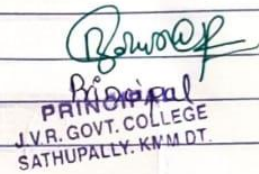 Principal
PRINCIPAL
J.V.R. GOVT. COLLEGE
SATHUPALLY. KMM DT.